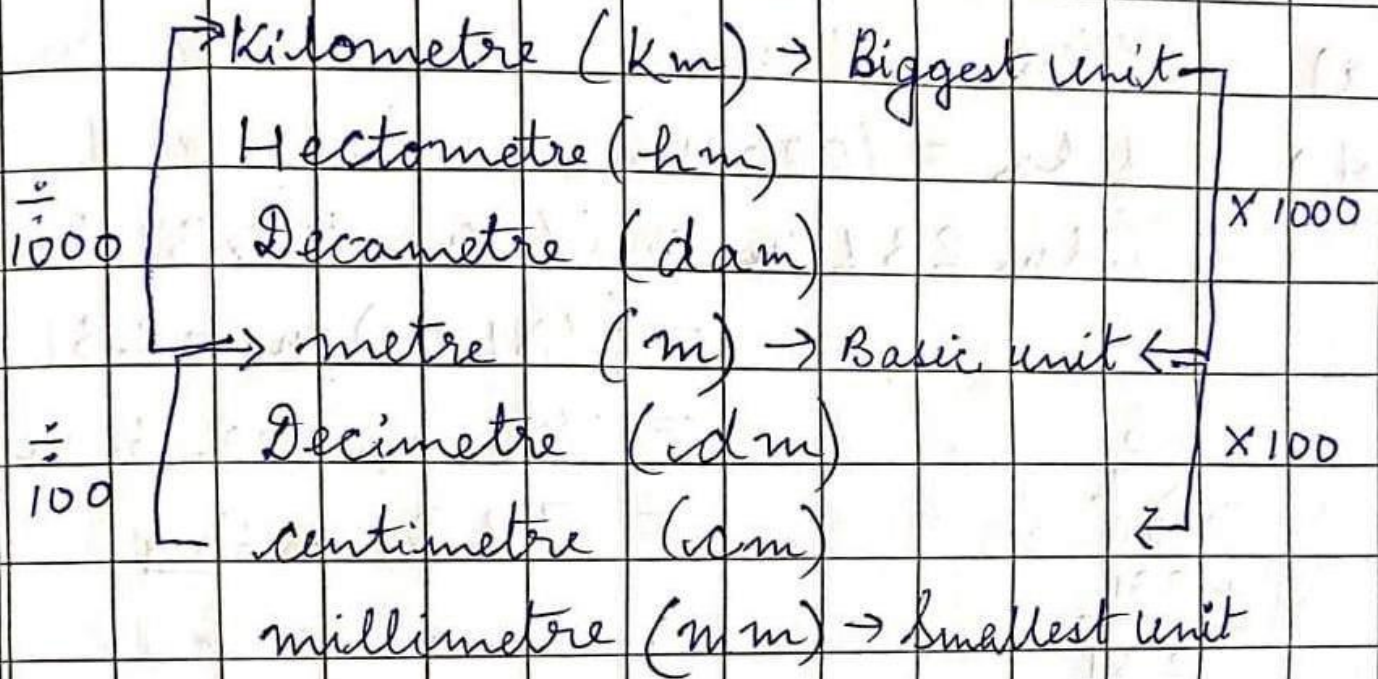 Kilometre (Km) → Biggest unit
Hectometre (hm)
÷ 1000 Decametre (dam) X 1000
metre (m) → Basic unit
÷ 100 Decimetre (dm) X 100
centimetre (cm)
millimetre (mm) → Smallest unit